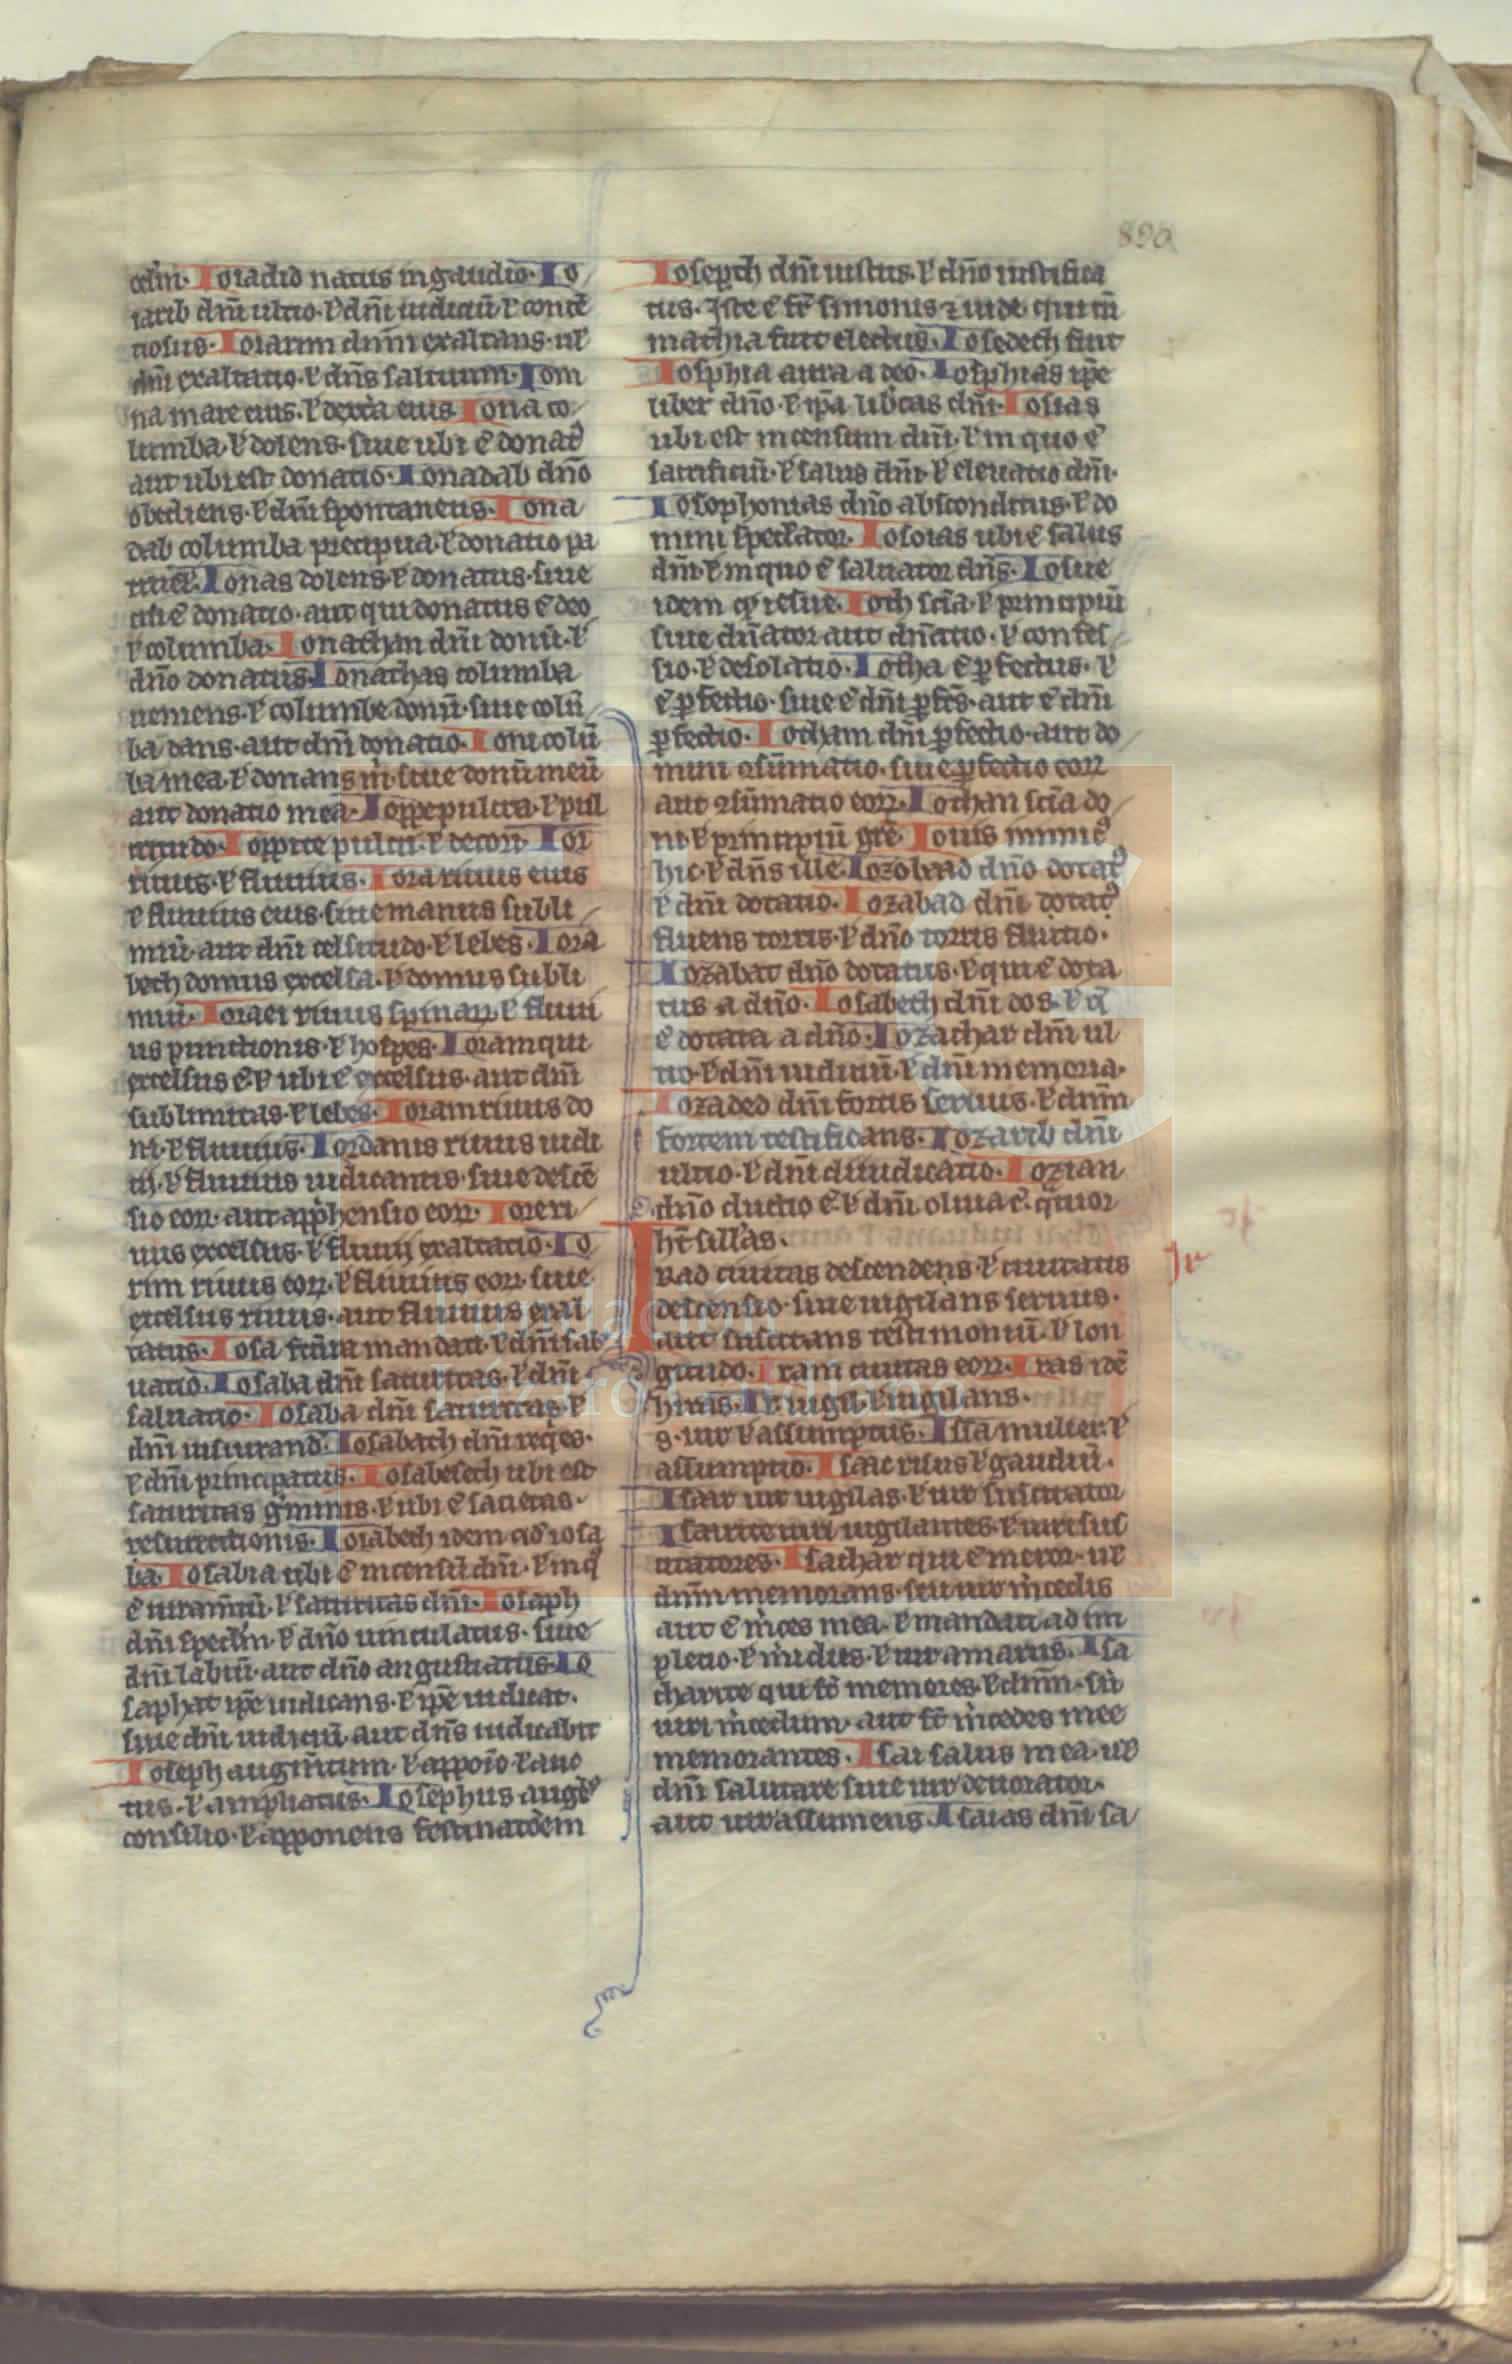 890
Ioiadid natus in gaudio. Io
iarib dñi ultio. ł dñi iudiciū. ł contē
tiosus. Ioiarim dñm exaltans. uł
dñi exaltatio. ł dñs saltuum. Iom
na mare eius. ł dextra eius. Iona co
lumba. ł dolens. siue ubi ē donat᷒
aut ubi est donatio. Ionadab dño
obediens. ł dñi spontaneus. Iona
dab columba precipua. ł donatio pa
Ionas dolens. ł donatus. siue
ē donatio. aut qui donatus ē deo
ł columba. Ionathan dñi donū. ł
dño donatus. Ionathas columba
uemens. ł columbe donū. siue colū
ba dans. aut dñi donatio. Ioni colū
ba mea. ł donans m̄. siue donū meū
aut donatio mea. Ioppe pulcra. ł pul
critudo. Ioppite pulcri. ł decori. Ior
riuus. ł fluuius. Iora riuus eius
ł fluuius eius. siue manus subli
miū. aut dñi celsitudo. ł lebes. Iora
bech domus excelsa. ł domus subli
miū. Ioraei riuus spinaꝝ. ł fluui
us punctionis. ł hospes. Ioram qui
excelsus ē. ł ubi ē excelsus. aut dñi
sublimitas. ł lebes. Ioram riuus do
ni. ł fluuius. Iordanis riuus iudi
cij. ł fluuius iudicantis. siue descē
sio eoꝝ. aut app̄hensio eoꝝ. Iore ri
uus excelsus. ł fluuij exaltatio. Io
rim riuus eoꝝ. ł fluuius eoꝝ. siue
excelsus riuus. aut fluuius exal
tatus. Iosa mandati. ł dñi sal
uatio. Iosaba dñi saturitas. ł dñi
saluatio. Iosaba dñi saturitas. ł
dñi iusiurand̄. Iosabach dñi req̄es.
ł dñi principatus. Iosabesech ubi est
saturitas ḡminis. ł ubi ē sacietas.
resurrectionis. Iosabech idem qd᷒ iosa
ba. Iosabia ubi ē incensū dñi. ł inq᷒
ē iuram̄tū. ł saturitas dñi. Iosaph
dñi specłm. ł dño uinculatus. siue
dñi labiū. aut dño angustiatus. Io
saphat ip̄e iudicans. ł ip̄e iudicat.
siue dñi iudiciū. aut dñs iudicabit
Ioseph augm̄tum. ł appoīo. ł auc
tus. ł ampliatus. Iosephus
consilio. ł apponens
Iosepch dñi iustus. ł dño iustifica
tus. Iste ē fr̄ simonis ⁊ iude. qui cū
mathia fuit electus. Iosedech
Iosphia aura a deo. Iosphias ip̄e
liber dño. ł ip̄a lib̄tas dñi. Iosias
ubi est incensum dñi. ł in quo ē
sacrificiū. ł salus dñi. ł eleuatio dñi.
Iosophonias dño absconditus. ł do
mini speclator. Iosoias ubi ē salus
dñi. ł in quo ē saluator dñs. Iosue
idem qd iesue. Ioth scīa. ł principiū
siue dñator aut dñatio. ł confes
sio. ł desolatio. Iotha ē ꝑfectus. ł
ē ꝑfectio. siue ē dñi ꝑfc̄s. aut ē dñi
ꝑfectio. Iotham dñi ꝑfectio. aut do
mini ꝯsūmatio. siue ꝑfectio eoꝝ
aut ꝯsūmatio eoꝝ. Iothan scīa do
ni. ł principiū grē. Iouis inimic᷒
hic. ł dñs ille. Iozobad dño dotat᷒
ł dñi dotatio. Iozabad dñi dotat᷒
fluens tortis. ł dño tortis fluctio.
Iozabat dño dotatus. ł qui ē dota
tus a dño. Iosabech dñi dos. ł q̄
ē dotata a dño. Iozachar dñi ul
tio. ł dñi iudiciū. ł dñi memoria.
Iozaded dñi fortis seruus. ł dñm
fortem testificans. Iozarib dñi
ultio. ł dñi diiudicatio. Iozian
dño ductio ē. ł dñi oliua ē. q̄tuor
ht̄ sill'as.
Irad ciuitas descendens. ł ciuitatis
descensio. siue uigilans seruus.
aut suscitans testimoniū. ł lon
gitudo. Iram ciuitas eoꝝ. Iras idē
hiras. Ir uigil. ł uigilans.
s. uir ł assumptus. Issa mulier. ł
assumptio. Isaac risus ł gaudiū.
Isair uir uigilās. ł uir suscitator
Isairite uiri uigilantes. ł uiri sus
citatores. Isachar qui ē meror. uł
dñm memorans. seu uir m̄cedis
aut ē m̄ces mea. ł mandati ad im
pletio. ł mūdus. ł uir amarus. Isa
charite qui sт̄ memores. ł dñm. siū
uiri m̄cedum. aut sт̄ m̄cedes mee
memorantes. Isai salus mea. uł
dñi salutare siue uir deuorator.
aut uir assumens. Isaias dñi sa
Ir